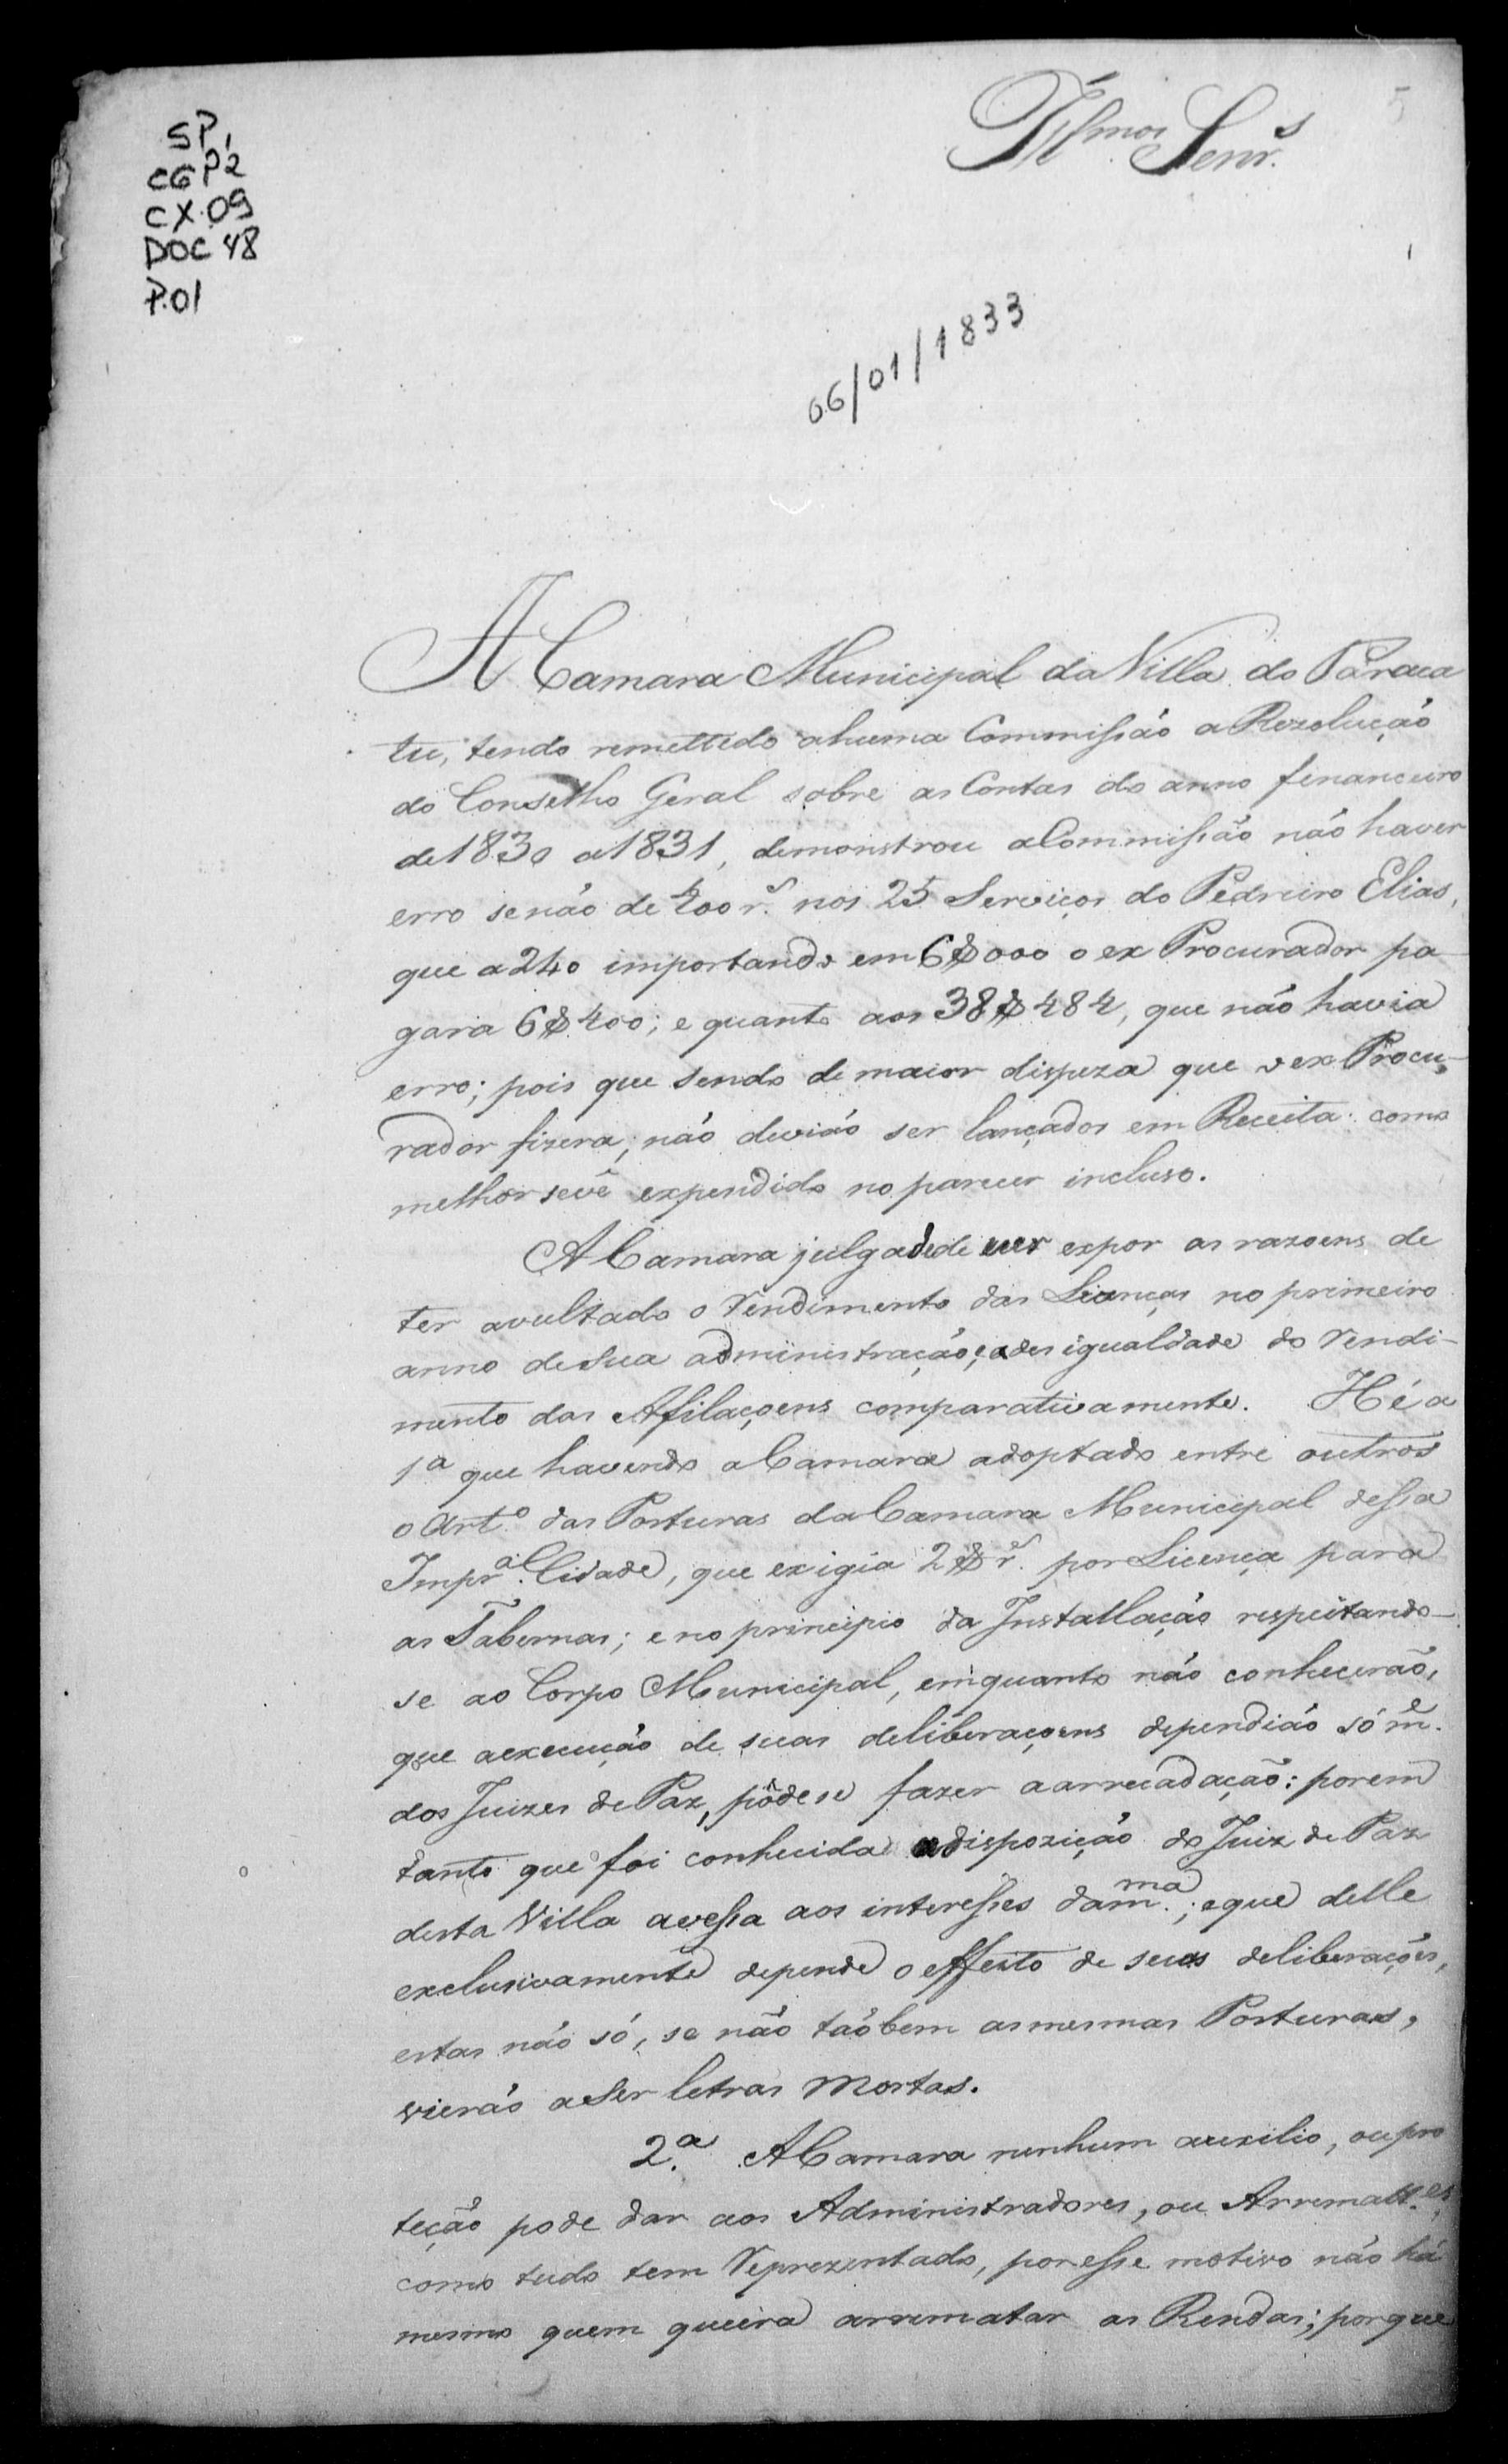 SP,
CGP2
CX.09
DOC 48
P.01
Illmos. Senrs.
06/01/1833
A Camara Municipal da Villa do Paraca
tu, tendo remettido a huma Commissão a Rezolução
do Conselho Geral sobre as Contas do anno financeiro
de 1830 a 1831, demonstrou a Commissão não haver
erro senão de 400 rs. nos 25 Serviços do Pedreiro Elias,
que a 240 importando em 6$000 o ex Procurador pa
gara 6$400; e quanto aos 38$484, que não havia
erro; pois que sendo de maior dispeza que o ex Procu-
rador fizera, não devião ser lançados em Receita: como
melhor se vê expendido no parecer incluso.
A Camara julga de dever expor as razoens de
ter avultado o Rendimento das Licenças no primeiro
anno de sua administração; e a desigualdade do Rendi-
mento das Afilaçoens comparativamente. Hé a
1ª que havendo a Camara adoptado entre outros
o Artº. das Posturas da Camara Municipal dessa
Imprᵃˡ. Cidade, que exigia 2$rs. por Licença para
as Tabernas; e no principio da Installação respeitando-
se ao Corpo Municipal, emquanto não conhecerão,
que a execução de suas deliberaçoens dependião sómᵉ.
dos Juizes de Paz, pôde se fazer a arrecadação: porem
tanto que foi conhecida a dispozição do Juiz de Paz
desta Villa avessa aos interesses da mma.; e que delle
exclusivamente depende o effeito de suas deliberações,
estas não só, se não taõbem as mesmas Posturas,
vierão a ser letras mortas.
2.ª A Camara nenhum auxilio, ou pro
teção pode dar aos Administradores, ou Arrematt.es,
como tudo tem Reprezentado, por esse motivo não há
mesmo quem queira arrematar as Rendas; porque